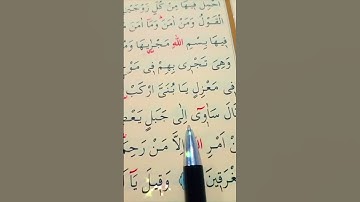 احْمِلْ فِيهَا مِنْ كُلٍّ زَوْجَيْنِ
الْقَوْلُ وَمَنْ اٰمَنَ وَمَٓا اٰمَنَ
فِيهَا بِسْمِ اللّٰهِ مَجْرٰۭيهَا
وَهِيَ تَجْرِي بِهِمْ فِي مَوْجٍ
فِي مَعْزِلٍ يَا بُنَيَّ ارْكَبْ
قَالَ سَاٰوِٓي اِلٰى جَبَلٍ
مِنْ اَمْرِ اللّٰهِ اِلَّا مَنْ رَحِمَ
وَقِيلَ يَٓا